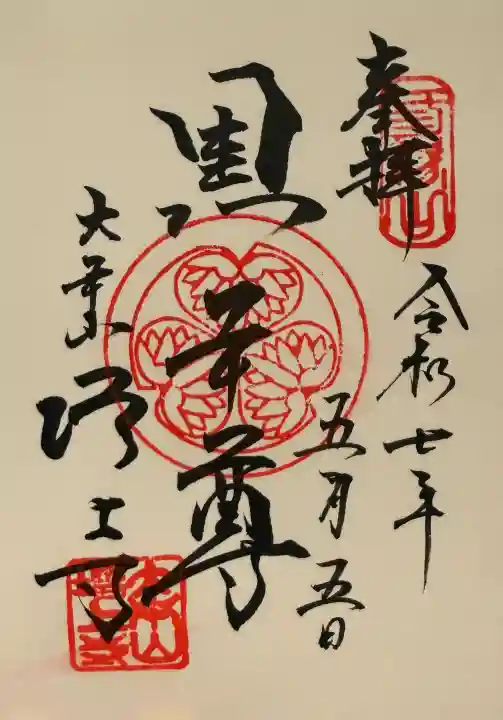 奉拝
令和七年
五月五日
黒本尊
大本山増上寺